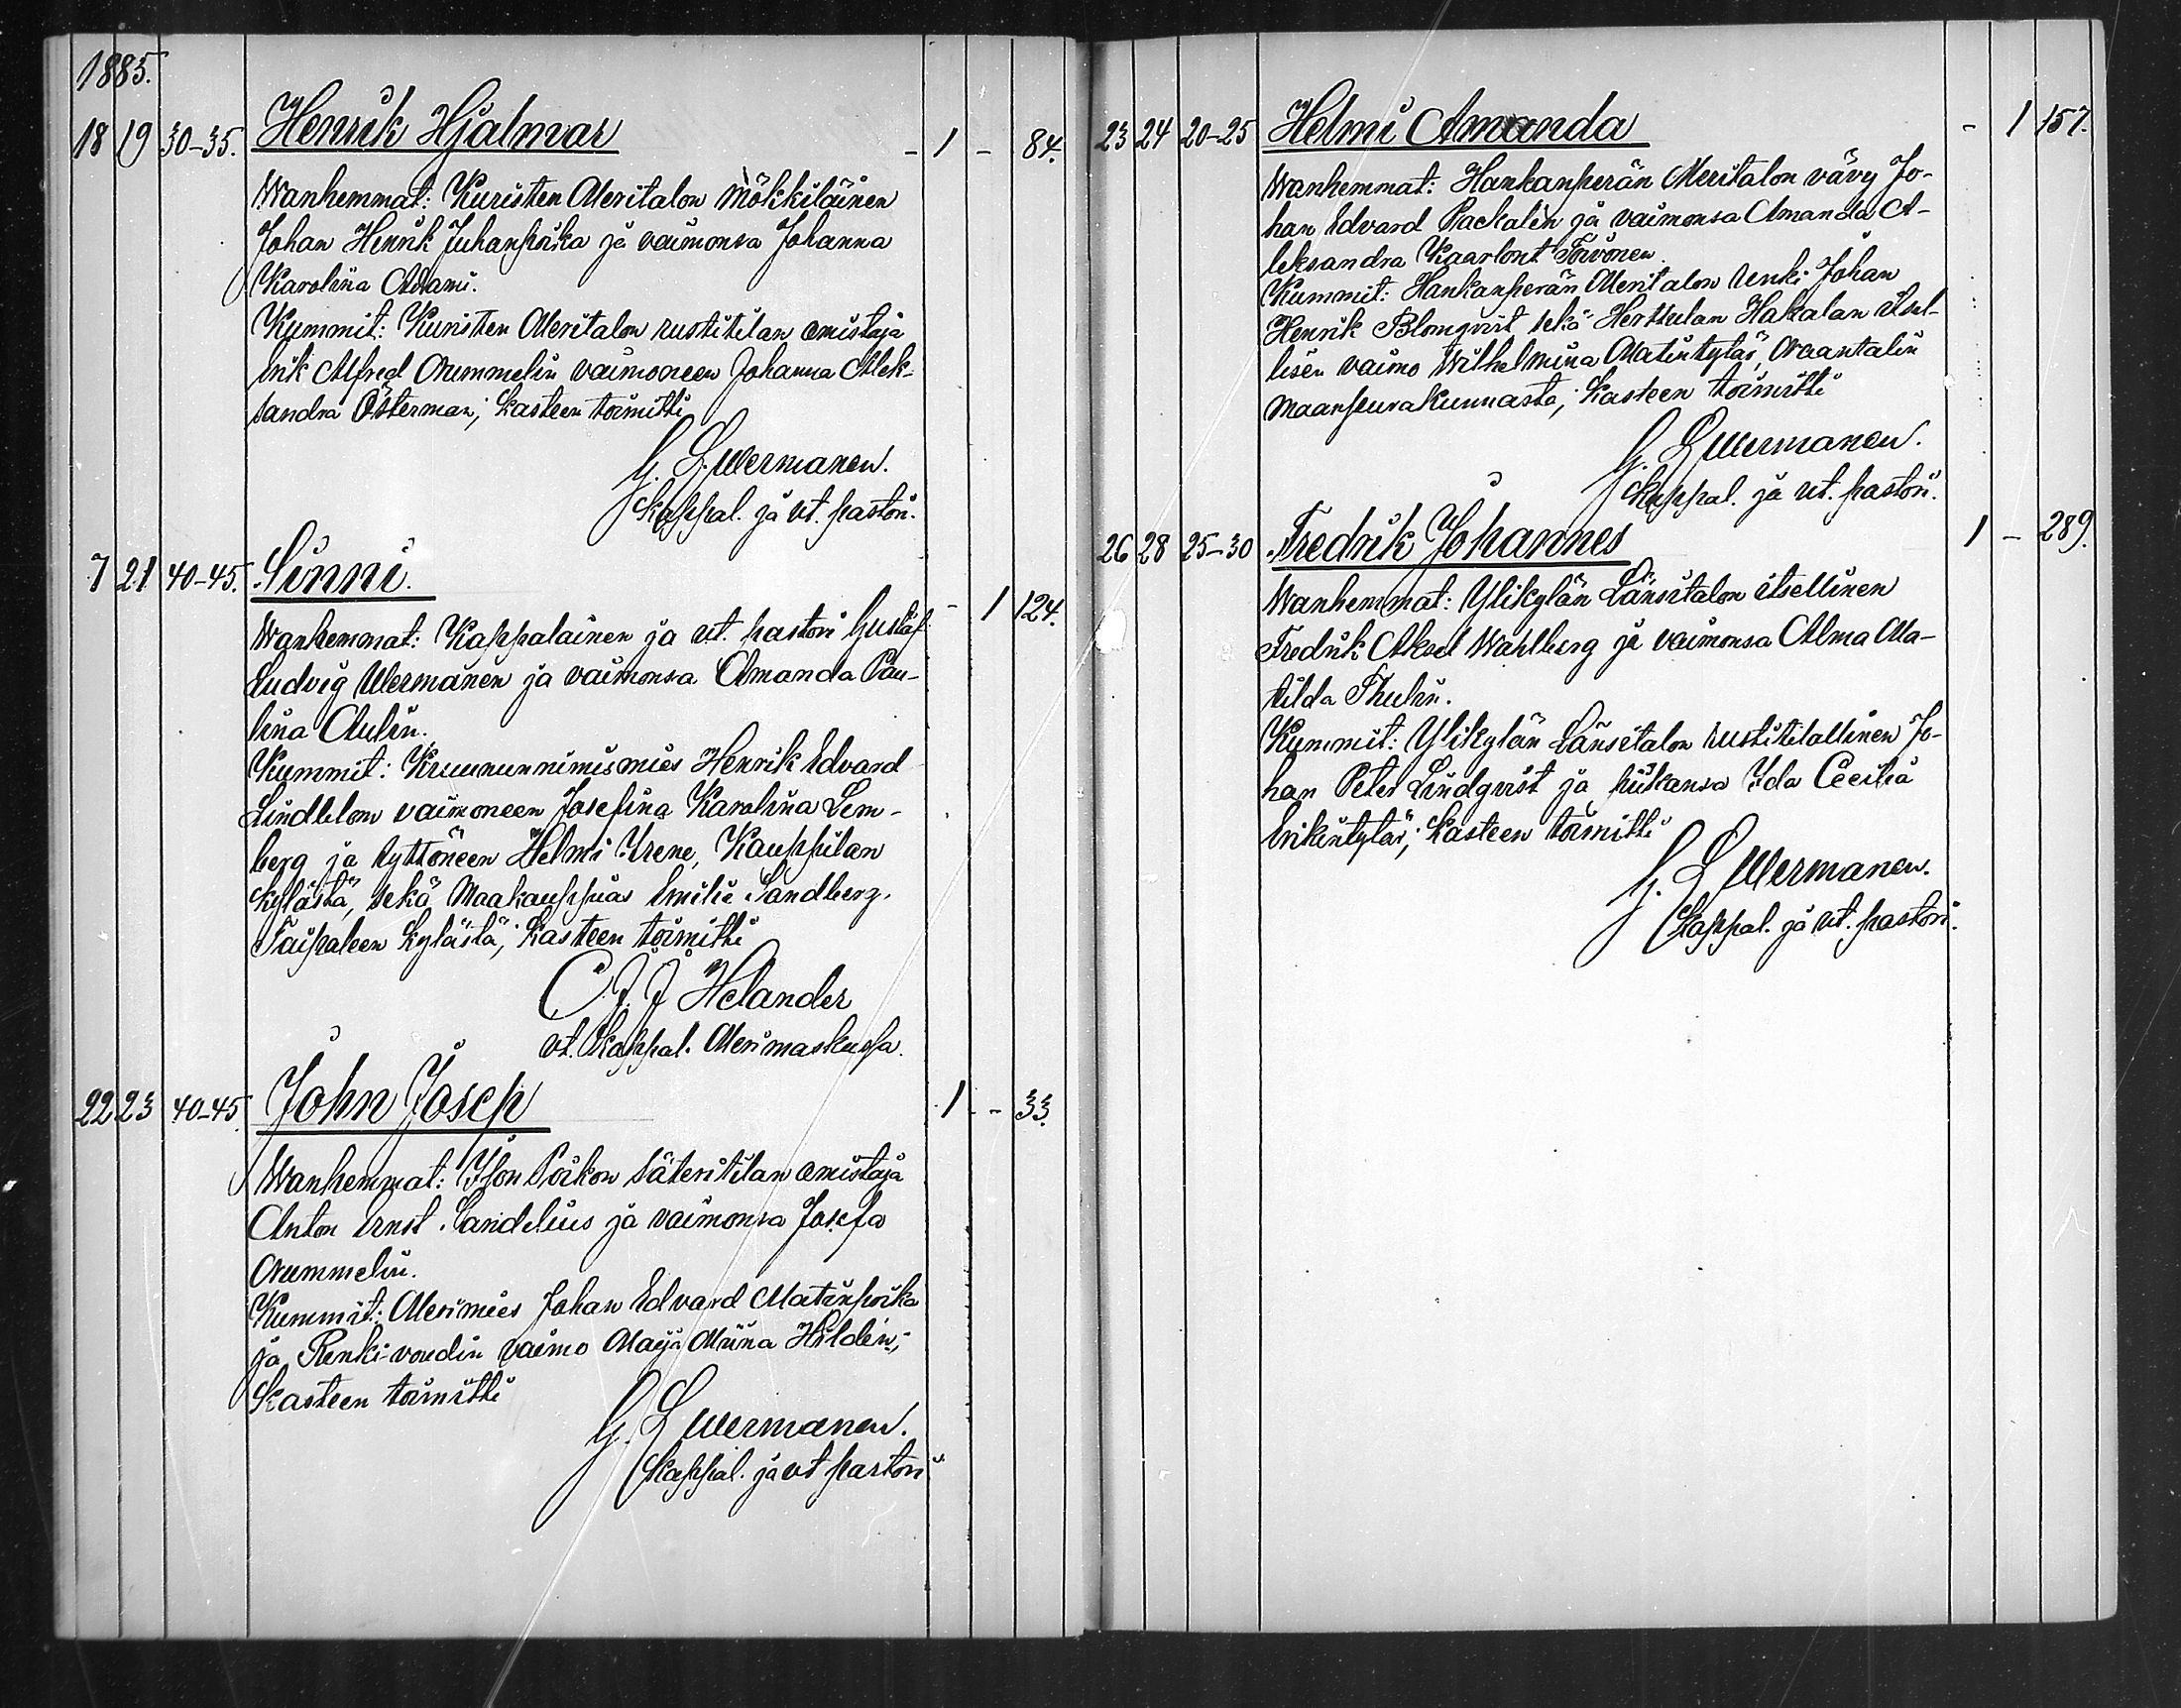 1885.
18 19 30-35. Henrik Hjalmar - 1 - 84.
Wanhemmat: Kuristen Meritalon Mökkiläinen
Johan Henrik Juhanpoika ja vaimonsa Johanna
Karolina Adami.
Kummit: Kuristen Meritalon rustitilan omistaja
Erik Alfred Nummelin vaimoneen Johanna Alek-
sandra Österman; kasteen toimitti
G. L. Wermanen.
Kappal. ja vt. pastori.
7 21 40-45. Sinni. - 1 124.
Wanhemmat: Kappalainen ja vt. pastori Gustaf
Ludvig Wermanen ja vaimonsa Amanda Pau-
lina Aulin.
Kummit: Kruununnimismies Henrik Edvard
Lindblom vaimoneen Josefina Karolina Lem-
berg ja tyttöneen Helmi Irene, Kauppilan
kylästä, sekä Maakauppias Emilie Sandberg.
Taipaleen kylästä; kasteen toimitti
C. J. J. Helander
vt. Kappal. Merimaskussa.
22 23 40-45. John Josep 1 - 33.
Wanhemmat: Ison Poikon säteritilan omistaja
Anton Ernst Sandelius ja vaimonsa Josefa
Nummelin.
Kummit: Merimies Johan Edvard Matinpoika
ja Renki-voudin vaimo Maija Miina Hildén;
kasteen toimitti
G. L. Wermanen.
Kappal. ja vt pastori
23 24 20-25 Helmi Amanda - 1 157.
Wanhemmat: Hankanperän Meritalon vävy Jo-
han Edvard Packalén ja vaimonsa Amanda A-
leksandra Kaarlont. Toivonen.
Kummit: Hankanperän Meritalon renki Johan
Henrik Blomqvist sekä Herttulan Hakalan itsel-
lisen vaimo Wilhelmina Matintytär, Naantalin
maanseurakunnasta; kasteen toimitti
G. L. Wermanen.
Kappal. ja vt. pastori.
26 28 25-30 Fredrik Johannes 1 - 289.
Wanhemmat: Ylikylän Länsitalon itsellinen
Fredrik Aksel Wahlberg ja vaimonsa Alma Ma-
tilda Thulin.
Kummit: Ylikylän Länsitalon rustitilallinen Jo-
han Peter Lindqvist ja piikansa Ida Cecilia
Erikintytär; kasteen toimitti
G. L. Wermanen.
Kappal. ja vt. pastori.